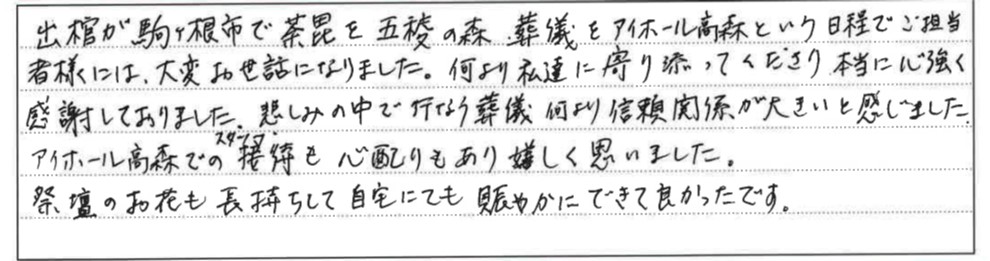 出棺が駒ヶ根市で荼毘を五稜の森 葬儀をアイホール高森という日程でご担当
者様には、大変お世話になりました。何より私達に寄り添ってくださり本当に心強く
感謝しておりました。悲しみの中で行なう葬儀 何より信頼関係が大きいと感じました。
スタッフの
アイホール高森での接待も 心配りもあり嬉しく思いました。
祭壇のお花も長持ちして自宅にても賑やかにできて良かったです。